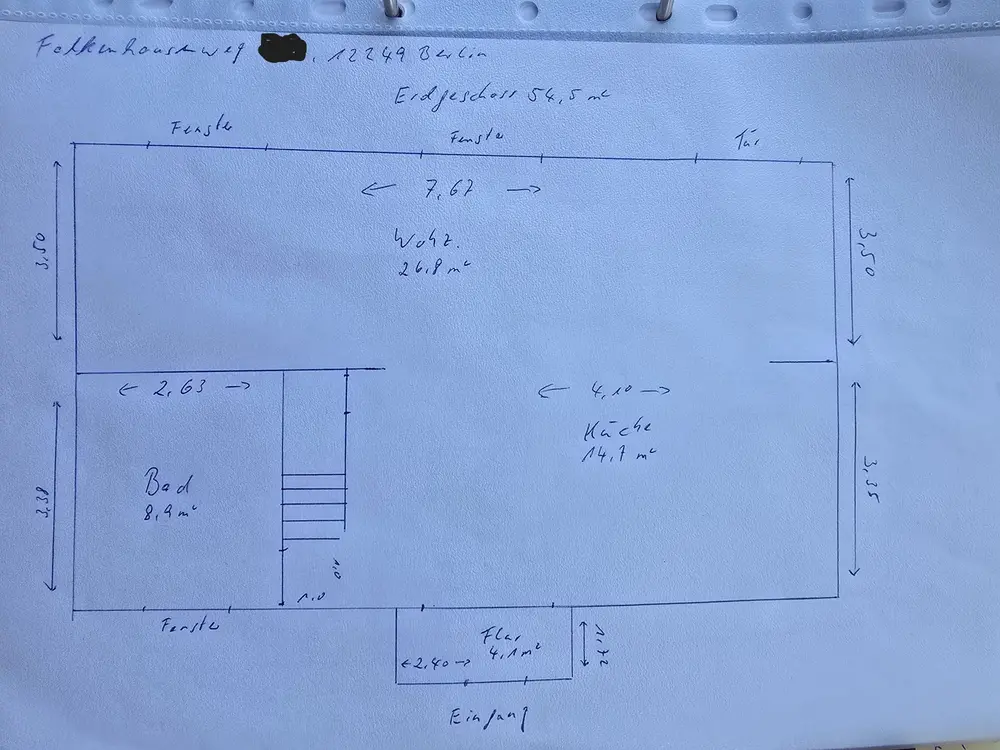 Falkenhausenweg , 12249 Berlin
Erdgeschoss 54,5 m²
Fenster Fenster Tür
7,67
3,50
Wohz.
26,8 m²
3,50
2,63
4,10
Küche
14,7 m²
Bad
8,9 m²
3,38
3,35
1,0
1,0
Fenster
Flur
4,1 m²
2,40
1,72
Eingang